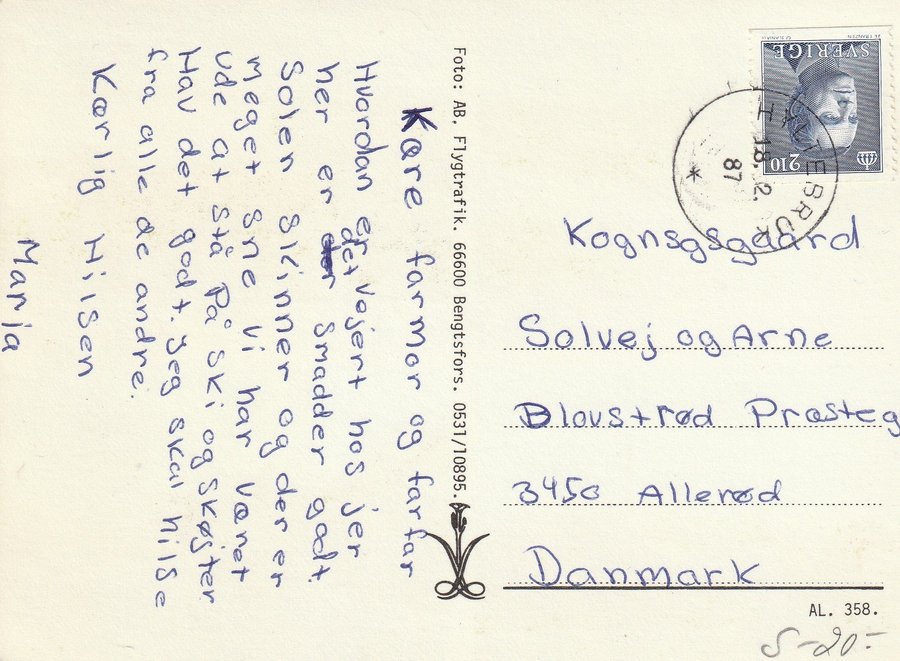 Kære farmor og farfar
Hvordan er vejert hos jer
det
her er smadder godt.
Solen skinner og der er
meget sne vi har vænet
ude at stå på ski og skøjter
Hav det godt. jeg skal hilse
fra alle de andre.
Kærlig Hilsen
Maria
Foto: AB. Flygtrafik. 66600 Bengtsfors. 0531/10895.
SVERIGE
210
18. 2.
87
Kognsgsgaard
Solvej og Arne
Blovstrød Præsteg
3450 Allerød
Danmark
AL. 358.
S -20:-